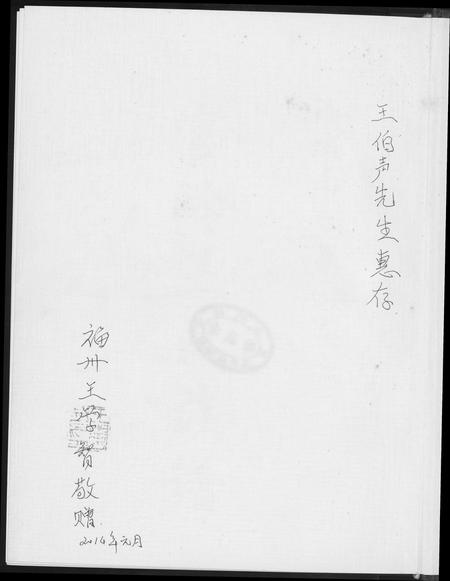 王伯声先生惠存
福州王学智敬赠
2016年元月